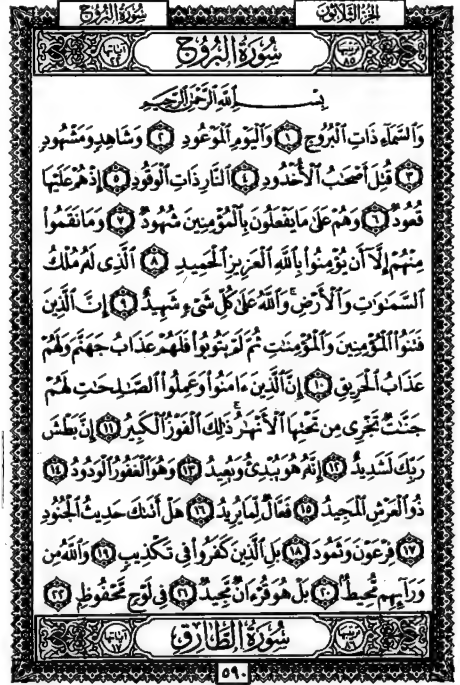 سُورَةُ البُرُوجِ
الجُزْءُ الثَّلَاثُونَ
سُورَةُ البُرُوجِ
بِسْمِ اللَّهِ الرَّحْمَٰنِ الرَّحِيمِ
وَالسَّمَاءِ ذَاتِ الْبُرُوجِ ١ وَالْيَوْمِ الْمَوْعُودِ ٢ وَشَاهِدٍ وَمَشْهُودٍ
٣ قُتِلَ أَصْحَابُ الْأُخْدُودِ ٤ النَّارِ ذَاتِ الْوَقُودِ ٥ إِذْ هُمْ عَلَيْهَا
قُعُودٌ ٦ وَهُمْ عَلَىٰ مَا يَفْعَلُونَ بِالْمُؤْمِنِينَ شُهُودٌ ٧ وَمَا نَقَمُوا
مِنْهُمْ إِلَّا أَن يُؤْمِنُوا بِاللَّهِ الْعَزِيزِ الْحَمِيدِ ٨ الَّذِي لَهُ مُلْكُ
السَّمَٰوَٰتِ وَالْأَرْضِ ۚ وَاللَّهُ عَلَىٰ كُلِّ شَيْءٍ شَهِيدٌ ٩ إِنَّ الَّذِينَ
فَتَنُوا الْمُؤْمِنِينَ وَالْمُؤْمِنَٰتِ ثُمَّ لَمْ يَتُوبُوا فَلَهُمْ عَذَابُ جَهَنَّمَ وَلَهُمْ
عَذَابُ الْحَرِيقِ ١٠ إِنَّ الَّذِينَ ءَامَنُوا وَعَمِلُوا الصَّٰلِحَٰتِ لَهُمْ
جَنَّٰتٌ تَجْرِي مِن تَحْتِهَا الْأَنْهَٰرُ ۚ ذَٰلِكَ الْفَوْزُ الْكَبِيرُ ١١ إِنَّ بَطْشَ
رَبِّكَ لَشَدِيدٌ ١٢ إِنَّهُ هُوَ يُبْدِئُ وَيُعِيدُ ١٣ وَهُوَ الْغَفُورُ الْوَدُودُ ١٤
ذُو الْعَرْشِ الْمَجِيدُ ١٥ فَعَّالٌ لِّمَا يُرِيدُ ١٦ هَلْ أَتَىٰكَ حَدِيثُ الْجُنُودِ
١٧ فِرْعَوْنَ وَثَمُودَ ١٨ بَلِ الَّذِينَ كَفَرُوا فِي تَكْذِيبٍ ١٩ وَاللَّهُ مِن
وَرَائِهِم مُّحِيطٌ ٢٠ بَلْ هُوَ قُرْءَانٌ مَّجِيدٌ ٢١ فِي لَوْحٍ مَّحْفُوظٍ ٢٢
سُورَةُ الطَّارِقِ
٥٩٠